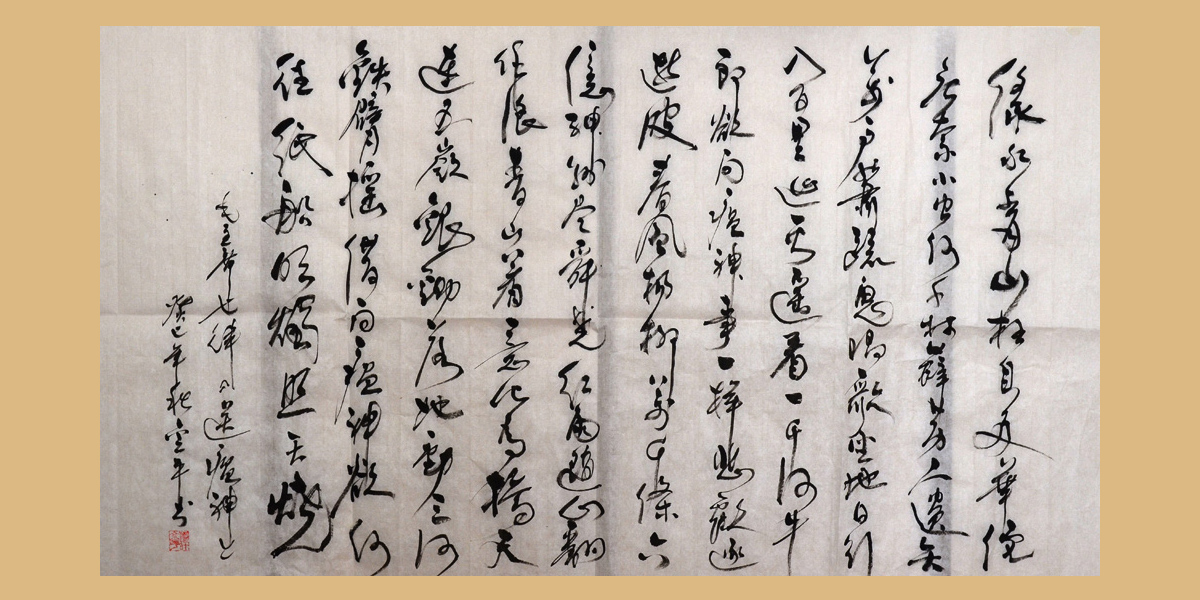 綠水青山枉自多華佗
無奈小虫何千村薜荔人遺矢
萬戶蕭疏鬼唱歌坐地日行
八百里巡天遙看一千河牛
郎欲問瘟神事一樣悲歡逐
逝波春風楊柳萬千條六
億神州尽舜堯紅雨隨心翻
作浪青山着意化為橋天
連五嶺銀鋤落地動三河
鐵臂搖借問瘟神欲何
往紙船明燭照天燒
毛主席七律《送瘟神》
癸巳年秋空平书